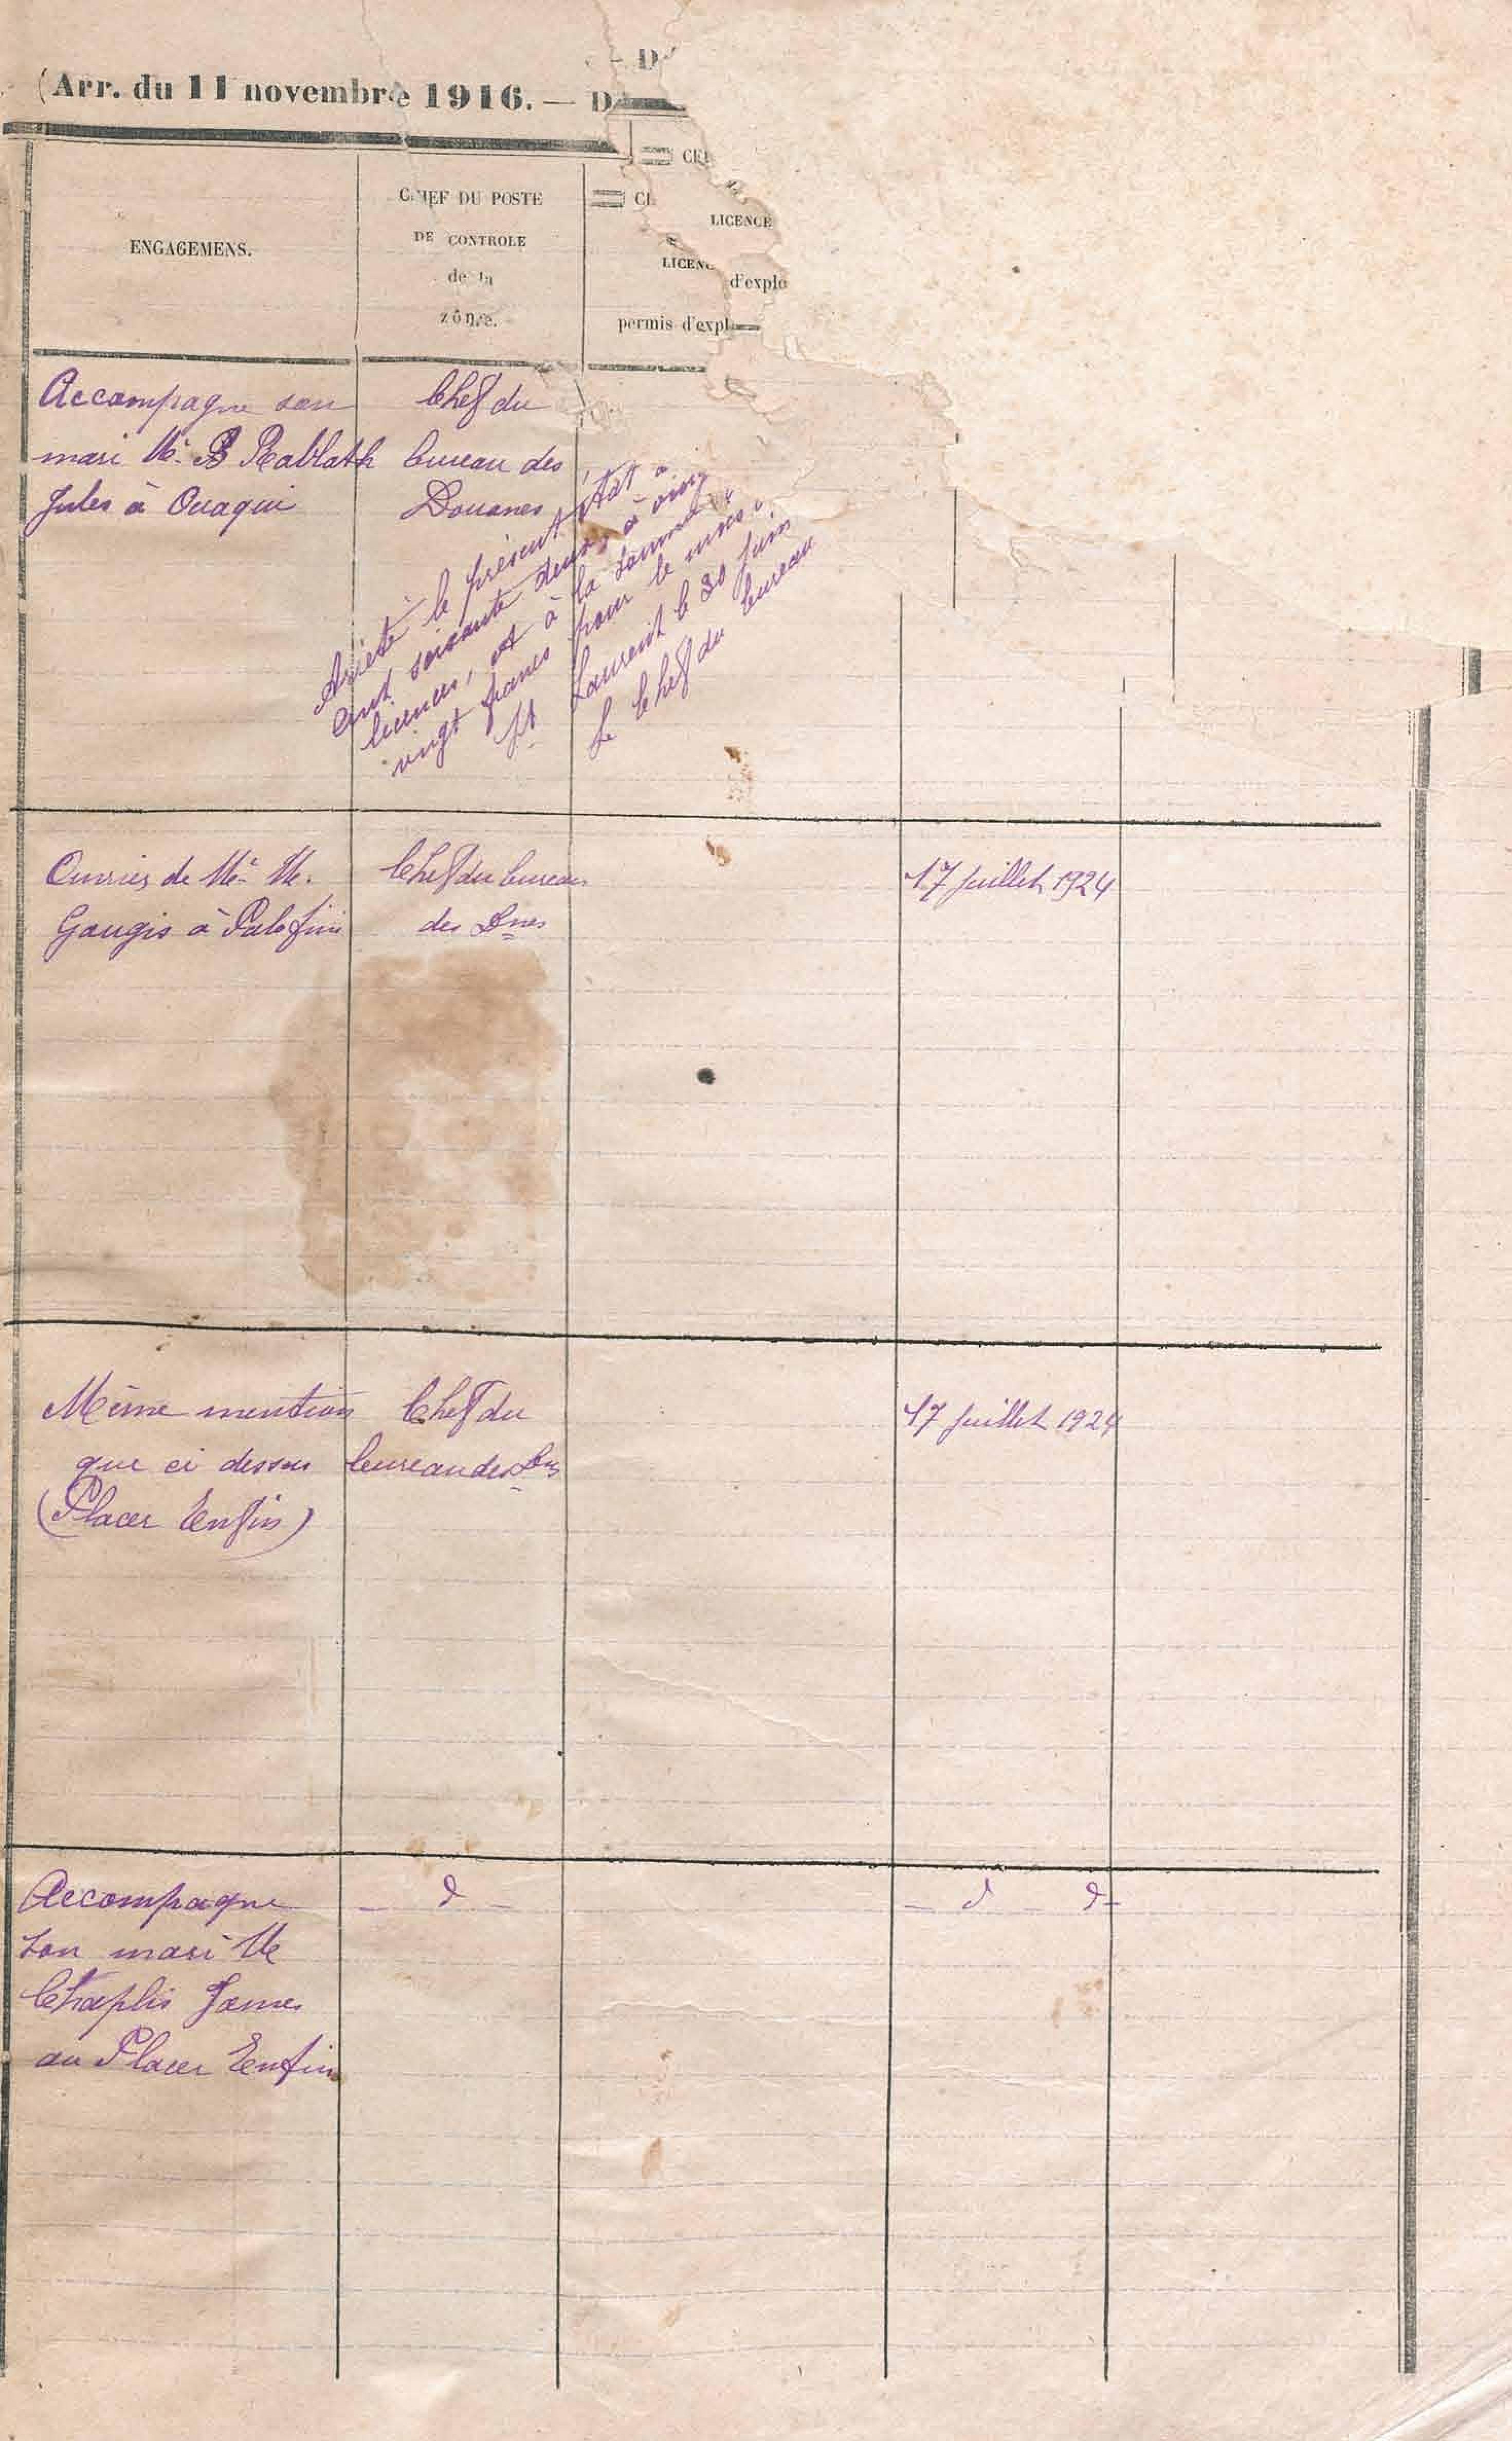 (Arr. du 11 novembre 1916. — D
ENGAGEMENS.
CHEF DU POSTE
DE CONTROLE
de la
zône.
LICENCE
d'explo
permis d'expl
Accompagne son
mari Mr. B Rablath
Jules à Ouaqui
Chef du
bureau des
Douanes
Arrêté le présent état à
cent soixante deux, à ving
licences, et à la somme
vingt francs pour le mois
St Laurent le 30 Juin
Le Chef du bureau
Ouvrier de Mr. M.
Gougis à Palofini
Chef du bureau
des Dnes
17 Juillet 1924
Même mention
que ci dessus
(Placer Enfin)
Chef du
bureau des Dnes
17 Juillet 1924
Accompagne
son mari M
Chaplis James
au Placer Enfin
— d —
— d — d —